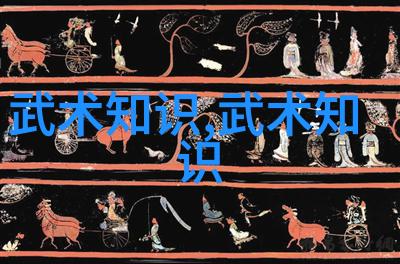 武术知识,武术知
识